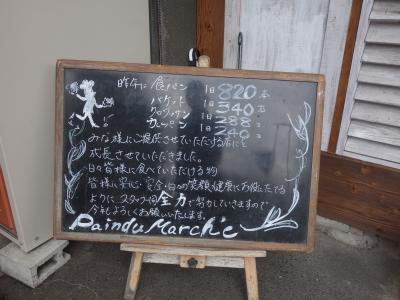 昨年は 食パン 1日 820本
バケット 1日 340本
クロワッサン 1日 288個
カレーパン 1日 240個
みな様にご提供させていただける店にと
成長させていただきました。
日々皆様に食べていただける物
皆様に安心・安全・日々の笑顔、健康にお役にたてる
ようにスタッフ一同全力で努力していきますので
今年もよろしくお願いいたします。
Pain du Marche